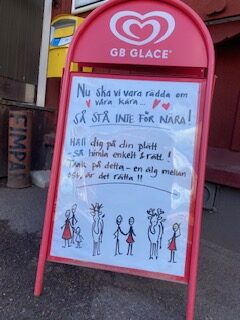 GB GLACE
Nu ska vi vara rädda om
våra kära...
SÅ STÅ INTE FÖR NÄRA!
Håll dig på din plätt
- så himla enkelt & rätt!
Tänk på detta - en älg mellan
oss, är det rätta!!
FIMPA